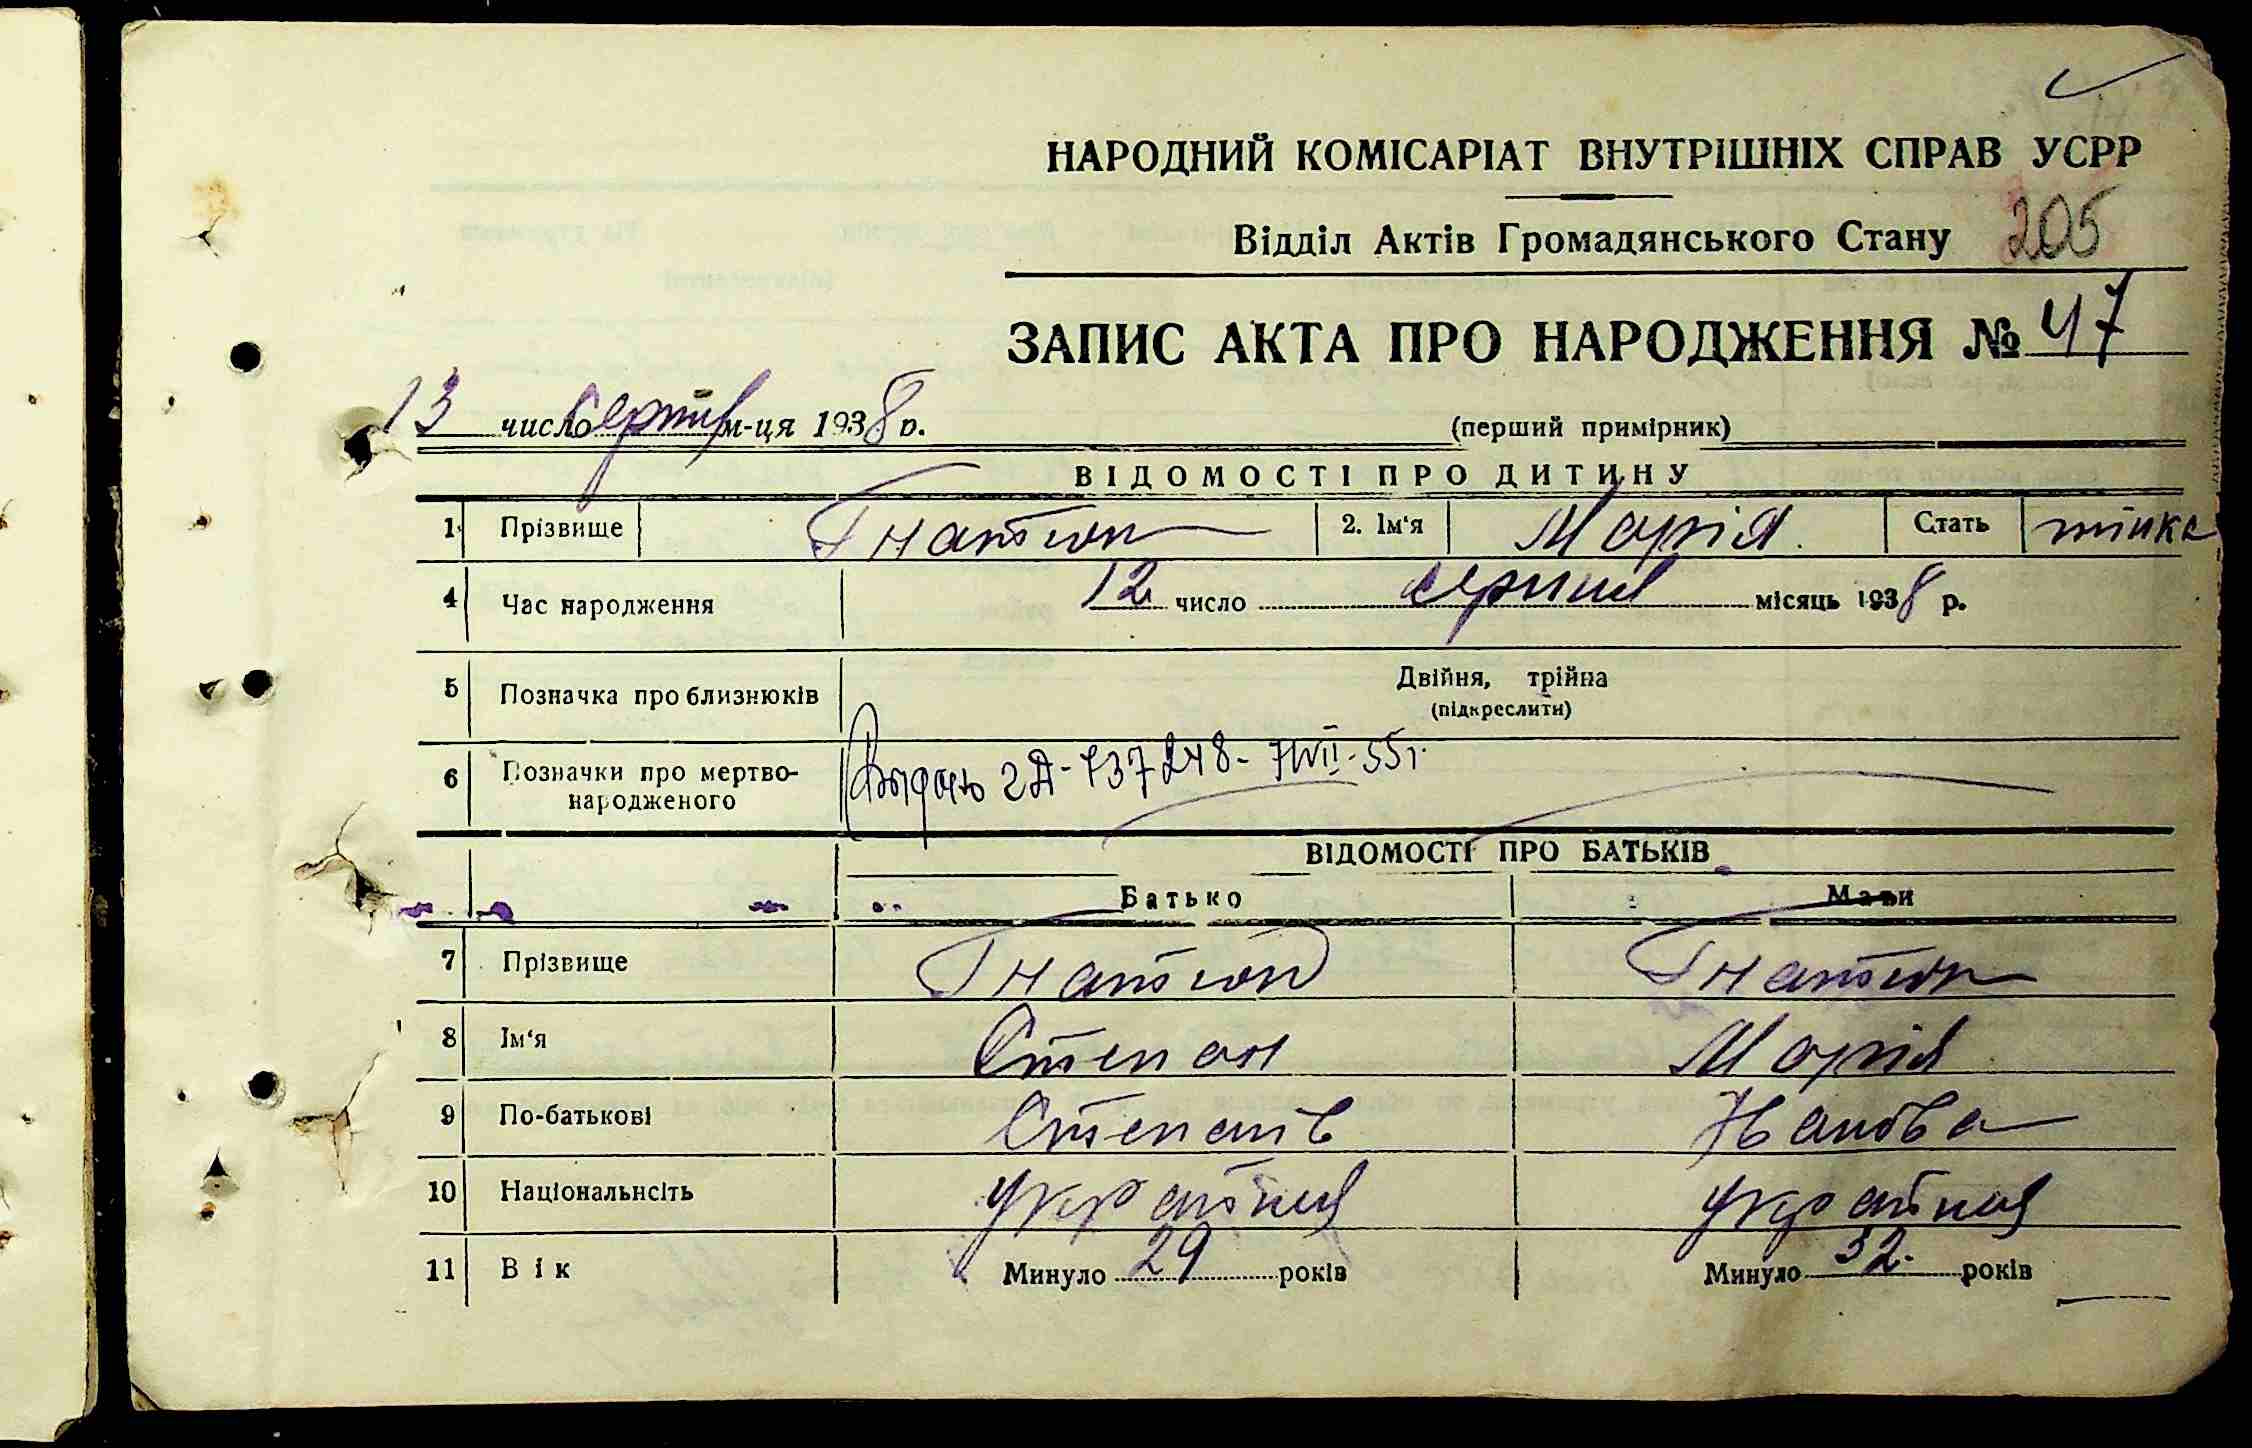 НАРОДНИЙ КОМІСАРІАТ ВНУТРІШНІХ СПРАВ УСРР
Відділ Актів Громадянського Стану 205
ЗАПИС АКТА ПРО НАРОДЖЕННЯ № 47
13 число серпня м-ця 1938 р. (перший примірник)
ВІДОМОСТІ ПРО ДИТИНУ
1 Прізвище Гнатюк 2. Ім'я Марія Стать жінка
4 Час народження 12 число серпня місяць 1938 р.
5 Позначка про близнюків Двійня, трійна
(підкреслити)
6 Позначки про мертво-
народженого
2Д-737248- 7/VII-55г.
ВІДОМОСТІ ПРО БАТЬКІВ
Батько Мати
7 Прізвище Гнатюк Гнатюк
8 Ім'я Степан Марія
9 По-батькові Степанів Іванівна
10 Національнсіть
11 Вік Минуло 29 років Минуло 32 років